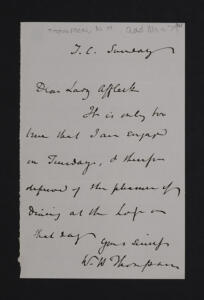 THOMPSON, W. H.
T. C. Sunday
Dear Lady Affleck
It is only too
true that I am engaged
on Tuesday, & therefore
deprived of the pleasure of
dining at the Lodge on
that day
Yours sincerely
W. H. Thompson